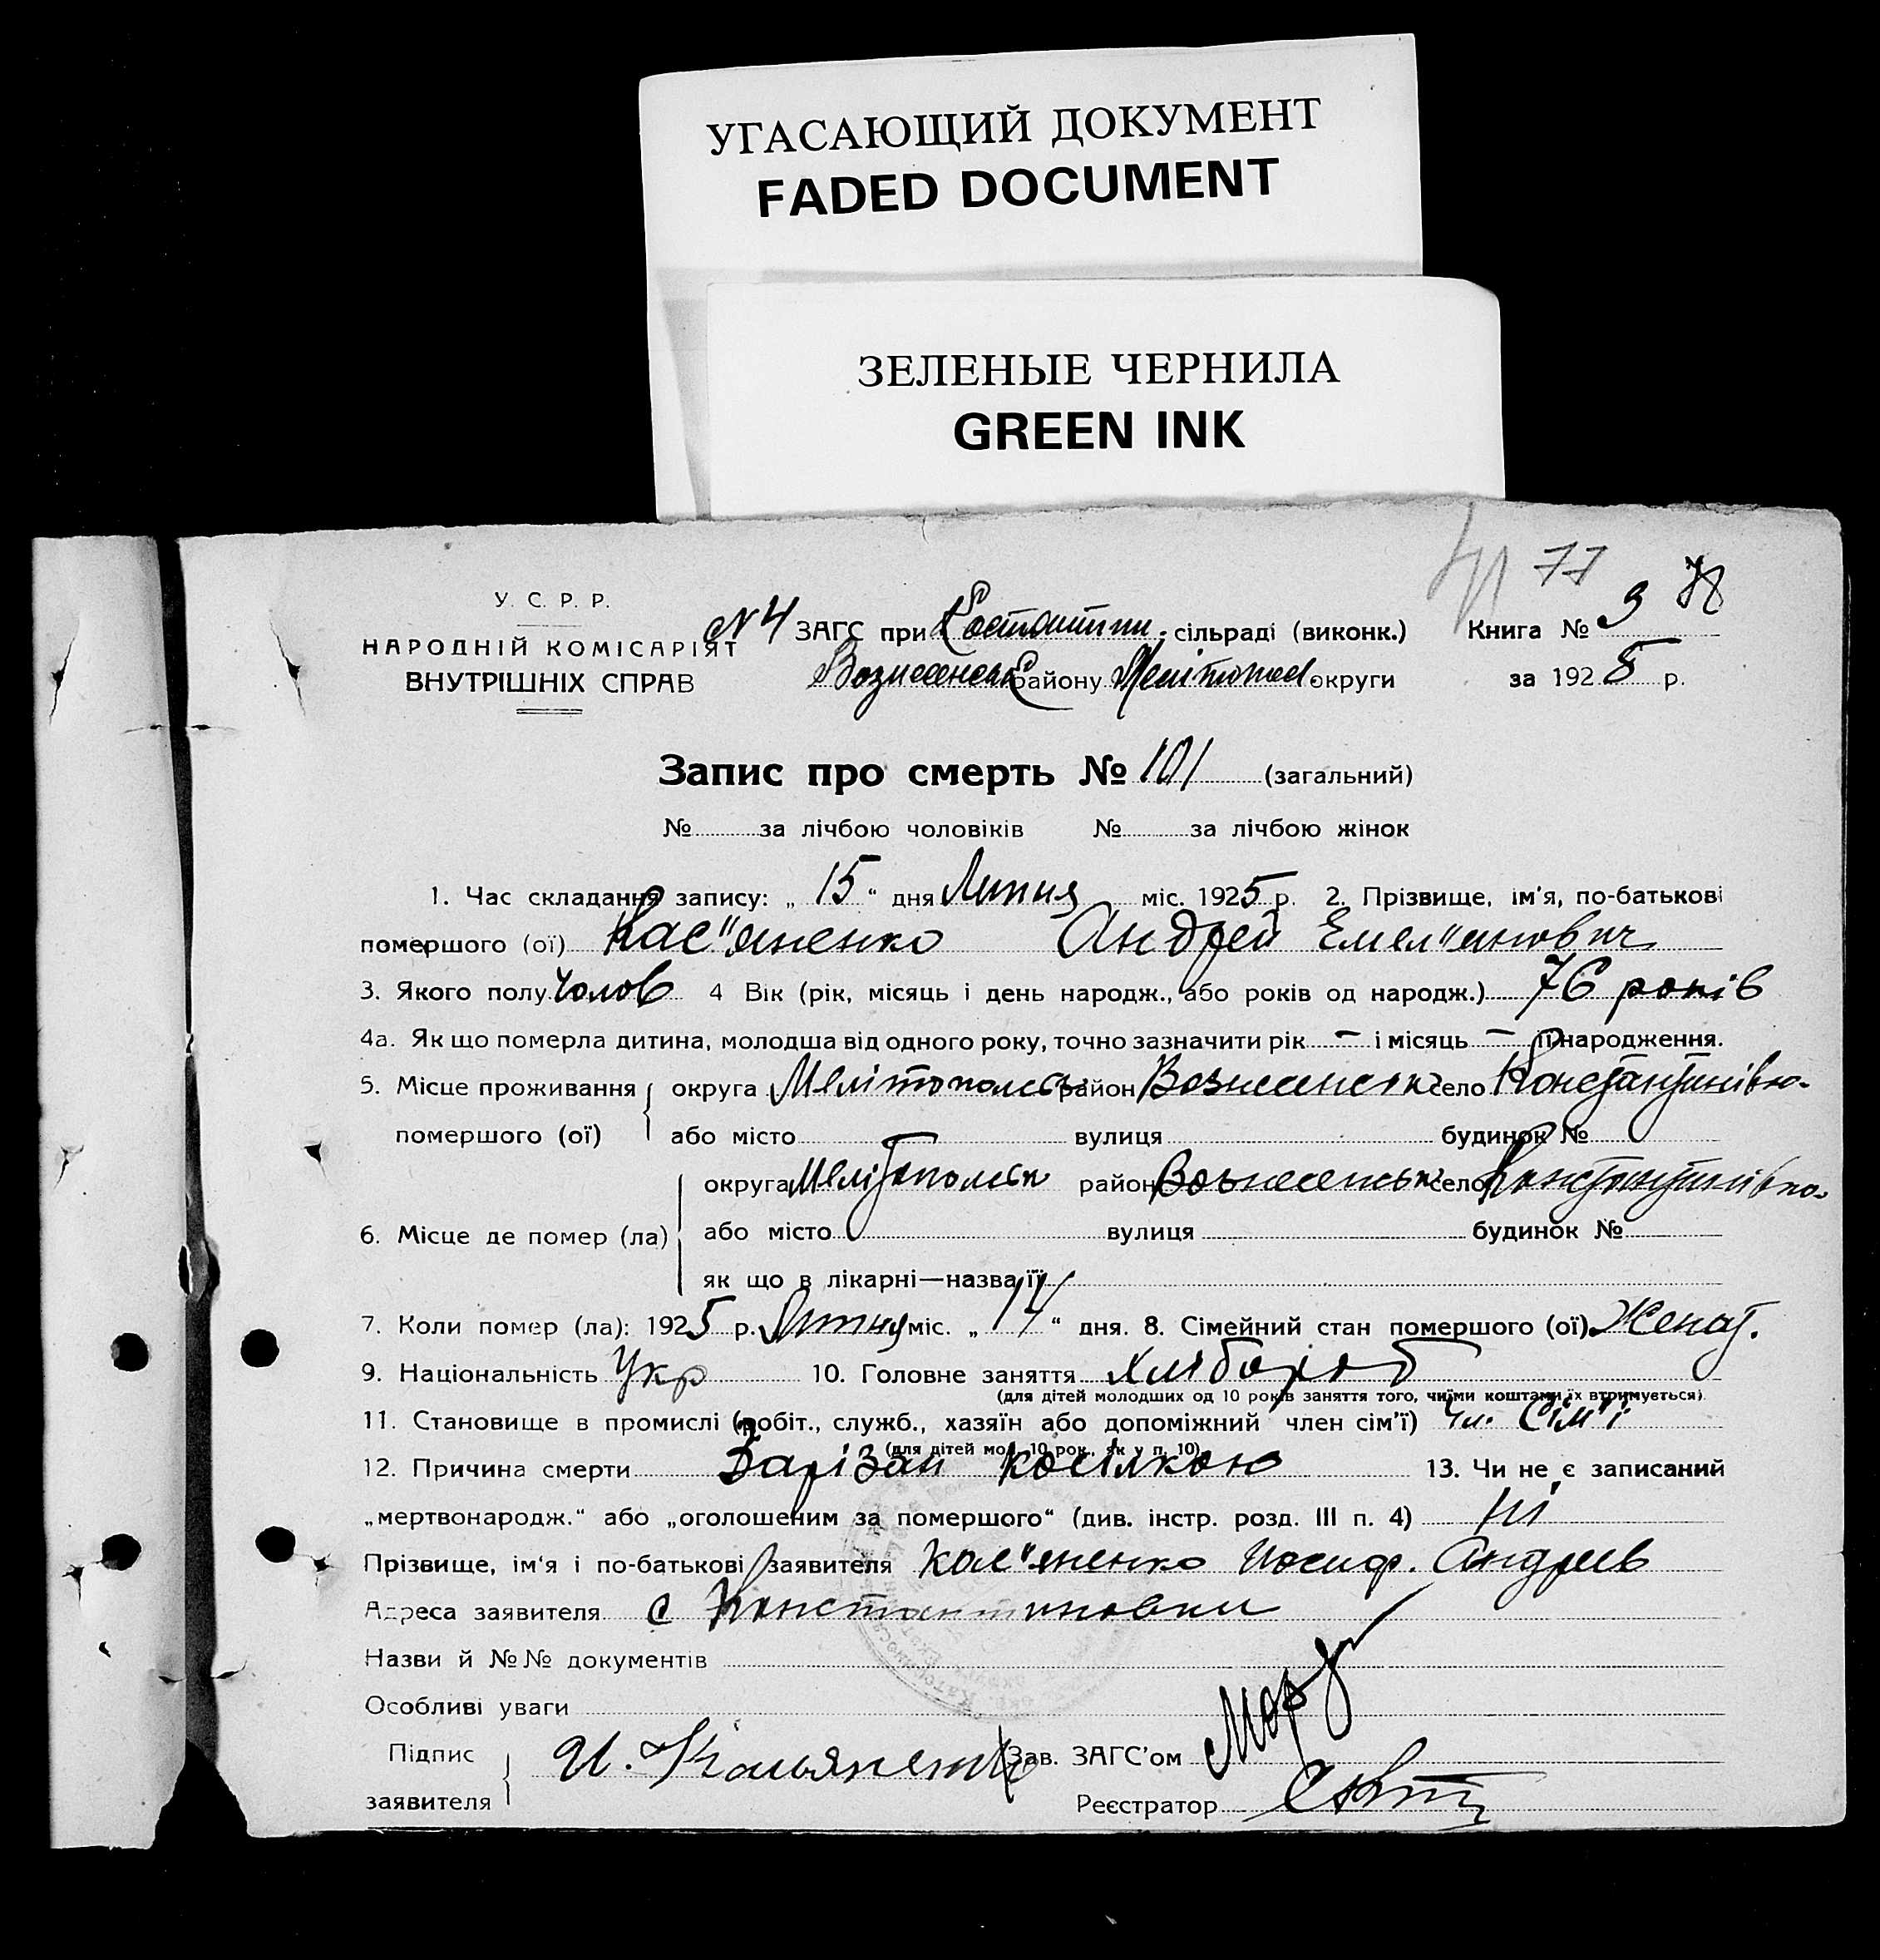 УГАСАЮЩИЙ ДОКУМЕНТ
FADED DOCUMENT
ЗЕЛЕНЫЕ ЧЕРНИЛА
GREEN INK
77 78
У. С. Р. Р.
НАРОДНІЙ КОМІСАРІЯТ
ВНУТРІШНІХ СПРАВ
N 4 ЗАГС при Костантин. сільраді (виконк.) Книга № 3
Вознесенськ району Мелітопол округи за 1925 р.
Запис про смерть № 101 (загальний)
№ за лічбою чоловіків № за лічбою жінок
1. Час складання запису: „ 15 “ дня Липня міс. 1925 р. 2. Прізвище, ім'я, по-батькові
помершого (ої) Кас"яненко Андрей Емел"янович
3. Якого полу Чолов 4 Вік (рік, місяць і день народж., або років од народж.) 76 років
4а. Як що померла дитина, молодша від одного року, точно зазначити рік – і місяць – її народження.
5. Місце проживання округа Мелітопольск район Вознесенськ село Константинівко-
помершого (ої) або місто вулиця будинок №
округа Мелітопольск район Вознесенськ село Константинівко-
6. Місце де помер (ла) або місто вулиця будинок №
як що в лікарні—назва її
7. Коли помер (ла): 1925 р. Липня міс. „ 14 “ дня. 8. Сімейний стан помершого (ої) Женат.
9. Національність Укр 10. Головне заняття Хлібороб
(для дітей молодших од 10 років заняття того, чиїми коштами їх втримується).
11. Становище в промислі (робіт., служб., хазяїн або допоміжний член сім'ї) Чл. Сім"ї
(для дітей мол. 10 рок., як у п. 10)
12. Причина смерти Зарізан косілкою 13. Чи не є записаний
„мертвонародж.“ або „оголошеним за помершого“ (див. інстр. розд. III п. 4) ні
Прізвище, ім'я і по-батькові заявителя Кас"яненко Иосиф. Андреев
Адреса заявителя с Константиновки
Назви й №№ документів
Особливі уваги
Підпис
заявителя И. Касьяненко Зав. ЗАГС'ом
Реєстратор